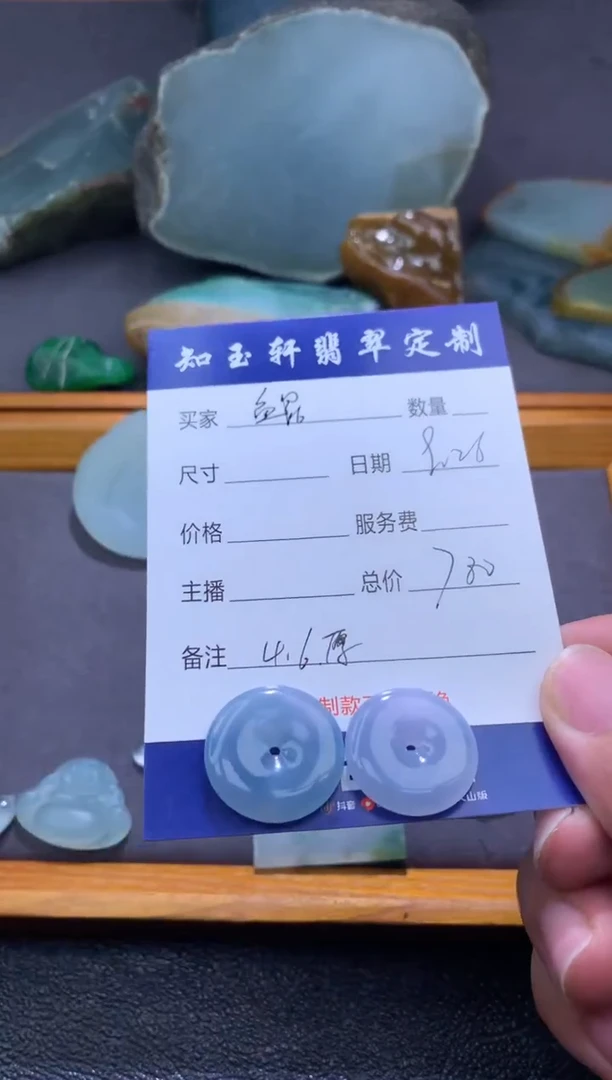 知玉轩翡翠定制
买家 数量
尺寸 日期 8.26
价格 服务费
主播 总价 730
备注 4.6厚
制款
抖音 火山版